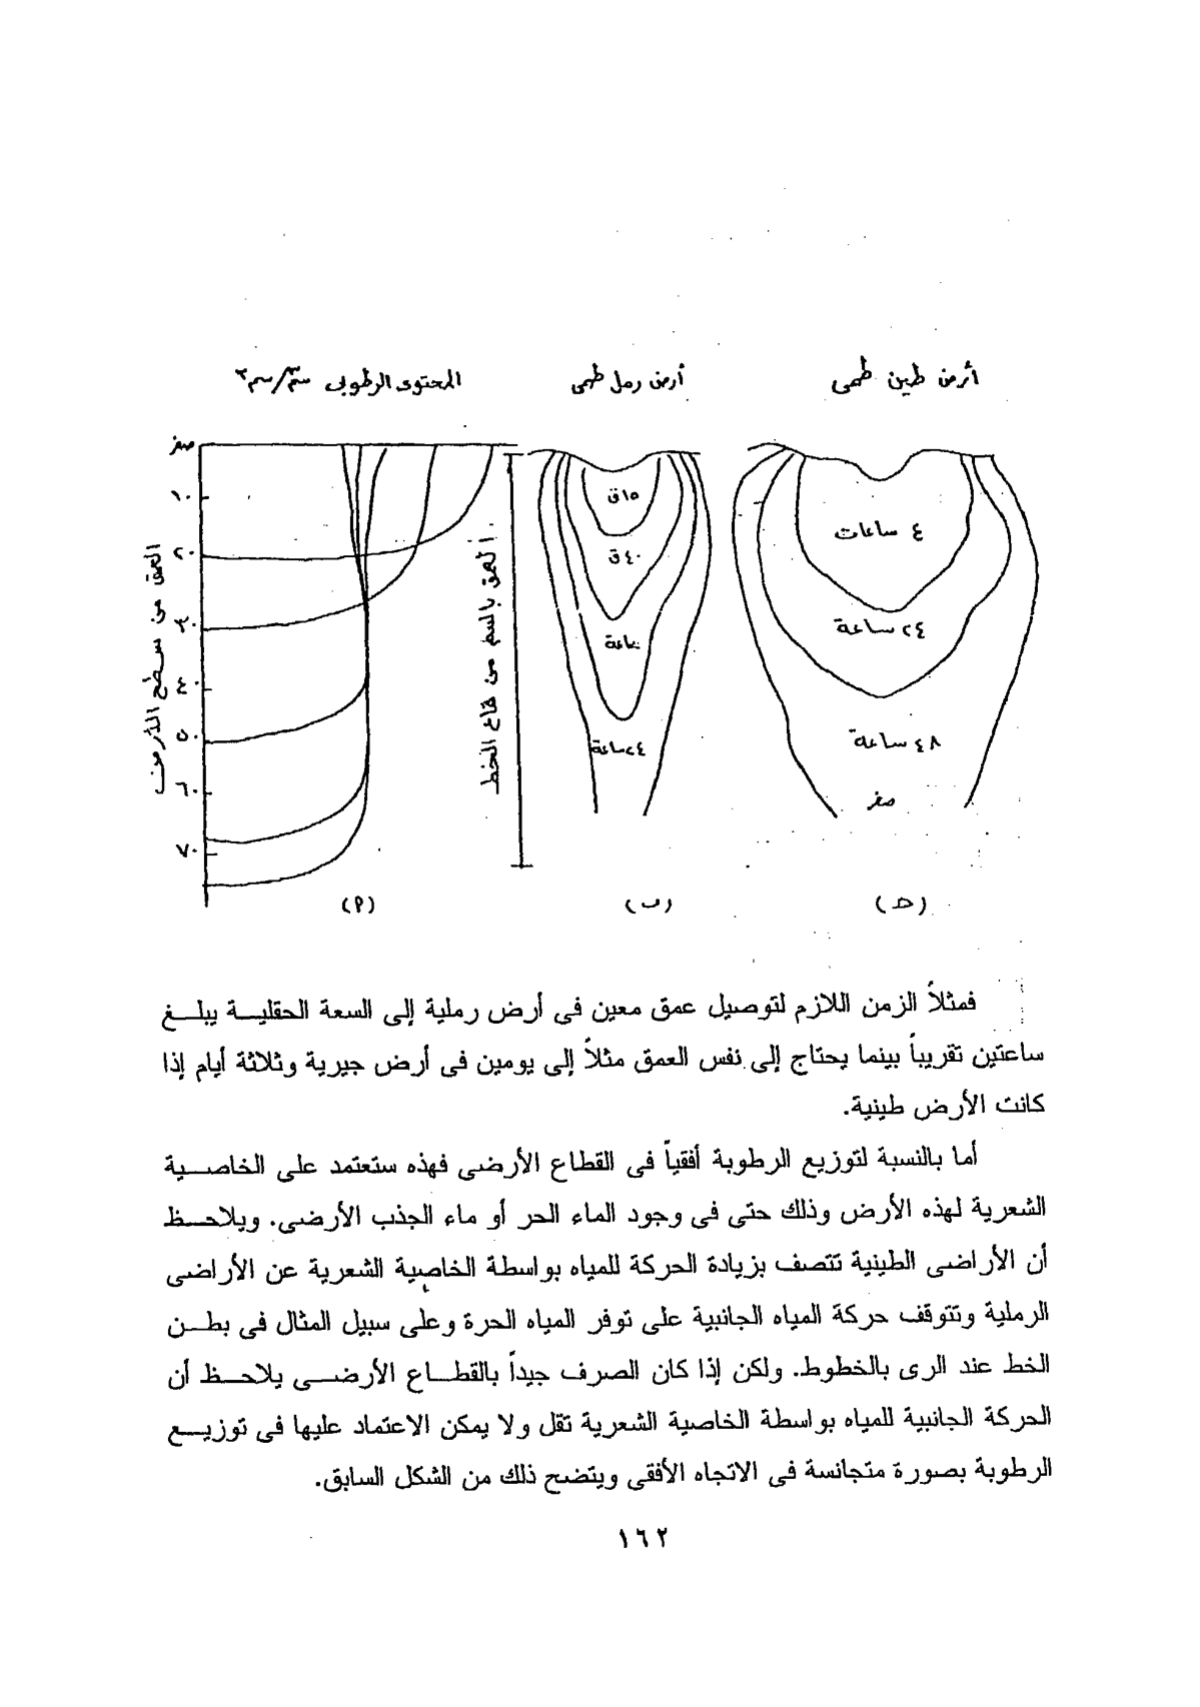 أرض طين طمى
أرض رمل طمى
المحتوى الرطوبى سم٣/سم٣
صفر
١٠
٢٠
٣٠
٤٠
٥٠
٦٠
٧٠
العمق من سطح الأرض
العمق بالسم من قاع الخط
١٥ق
٤٠ق
ساعة
٢٤ساعة
٤ ساعات
٢٤ ساعة
٤٨ ساعة
صفر
(أ)
(ب)
(حـ)
فمثلاً الزمن اللازم لتوصيل عمق معين فى أرض رملية إلى السعة الحقلية يبلغ
ساعتين تقريباً بينما يحتاج إلى نفس العمق مثلاً إلى يومين فى أرض جيرية وثلاثة أيام إذا
كانت الأرض طينية.
أما بالنسبة لتوزيع الرطوبة أفقياً فى القطاع الأرضى فهذه ستعتمد على الخاصية
الشعرية لهذه الأرض وذلك حتى فى وجود الماء الحر أو ماء الجذب الأرضى. ويلاحظ
أن الأراضى الطينية تتصف بزيادة الحركة للمياه بواسطة الخاصية الشعرية عن الأراضى
الرملية وتتوقف حركة المياه الجانبية على توفر المياه الحرة وعلى سبيل المثال فى بطن
الخط عند الرى بالخطوط. ولكن إذا كان الصرف جيداً بالقطاع الأرضى يلاحظ أن
الحركة الجانبية للمياه بواسطة الخاصية الشعرية تقل ولا يمكن الاعتماد عليها فى توزيع
الرطوبة بصورة متجانسة فى الاتجاه الأفقى ويتضح ذلك من الشكل السابق.
١٦٢